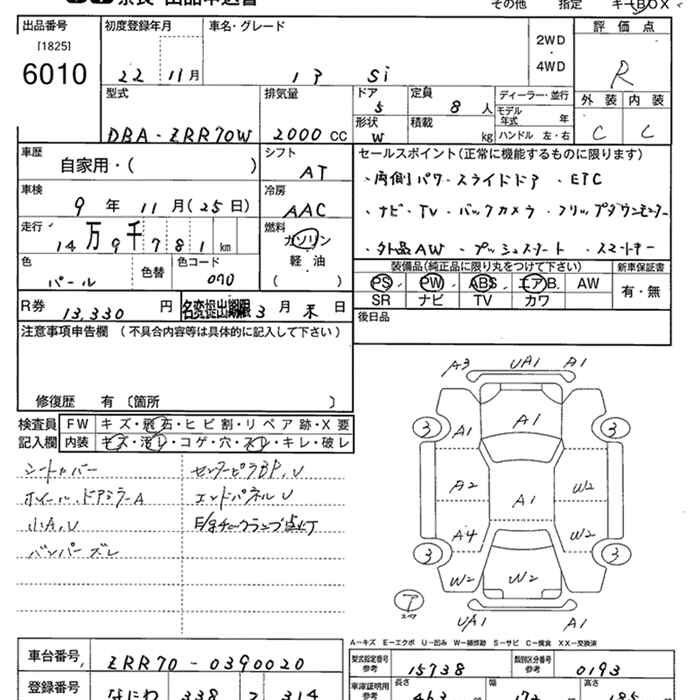 奈良 出品申込書
その他 指定 キーBOX
出品番号 初度登録年月 車名・グレード 評価点
[1825]
6010
22 11月 13 Si
2WD
4WD
R
外装 内装
C C
型式 排気量 ドア 定員 ディーラー・並行
5 8人 モデル年式 年
DBA-ZRR70W 2000CC
形状 積載
W kg ハンドル 左・右
車歴 シフト セールスポイント(正常に機能するものに限ります)
自家用・( )
AT
・両側パワースライドドア ・ETC
車検 冷房
9年 11月(25日)
AAC
・ナビ・TV・バックカメラ・フリップダウンモニター
走行 燃料
14万9千781km
ガソリン
軽油
( )
・外品AW ・プッシュスタート ・スマートキー
色 色替 色コード
パール 070
装備品(純正品に限り丸をつけて下さい) 新車保証書
PS PW ABS エアB. AW 有・無
SR ナビ TV カワ
R券 13,330円 名変提出期限 3月末日
後日品
注意事項申告欄 (不具合内容等は具体的に記入して下さい)
修復歴 有〔箇所 〕
検査員 FW キズ・飛石・ヒビ割・リペア跡・X要
記入欄 内装 キズ・汚レ・コゲ・穴・スレ・キレ・破レ
シートカバー センターピラBP,U
ホイール,ドアミラーA エンドパネルU
小A,U E/gチェックランプ点灯
バンパーズレ
A3 UA1 A1
3 A1 A1 3
A2 A1 W2
A4 W2
3 W2 W2 3
ア
スペア
UA1 A1
A-キズ E-エクボ U-凹み W-補修跡 S-サビ C-腐食 XX-交換済
車台番号 ZRR70-0390020
型式指定番号 参考 15738 類別区分番号 参考 0193
登録番号 なにわ 338 314
車庫証明用 参考 長さ 463 幅 172 高さ 185